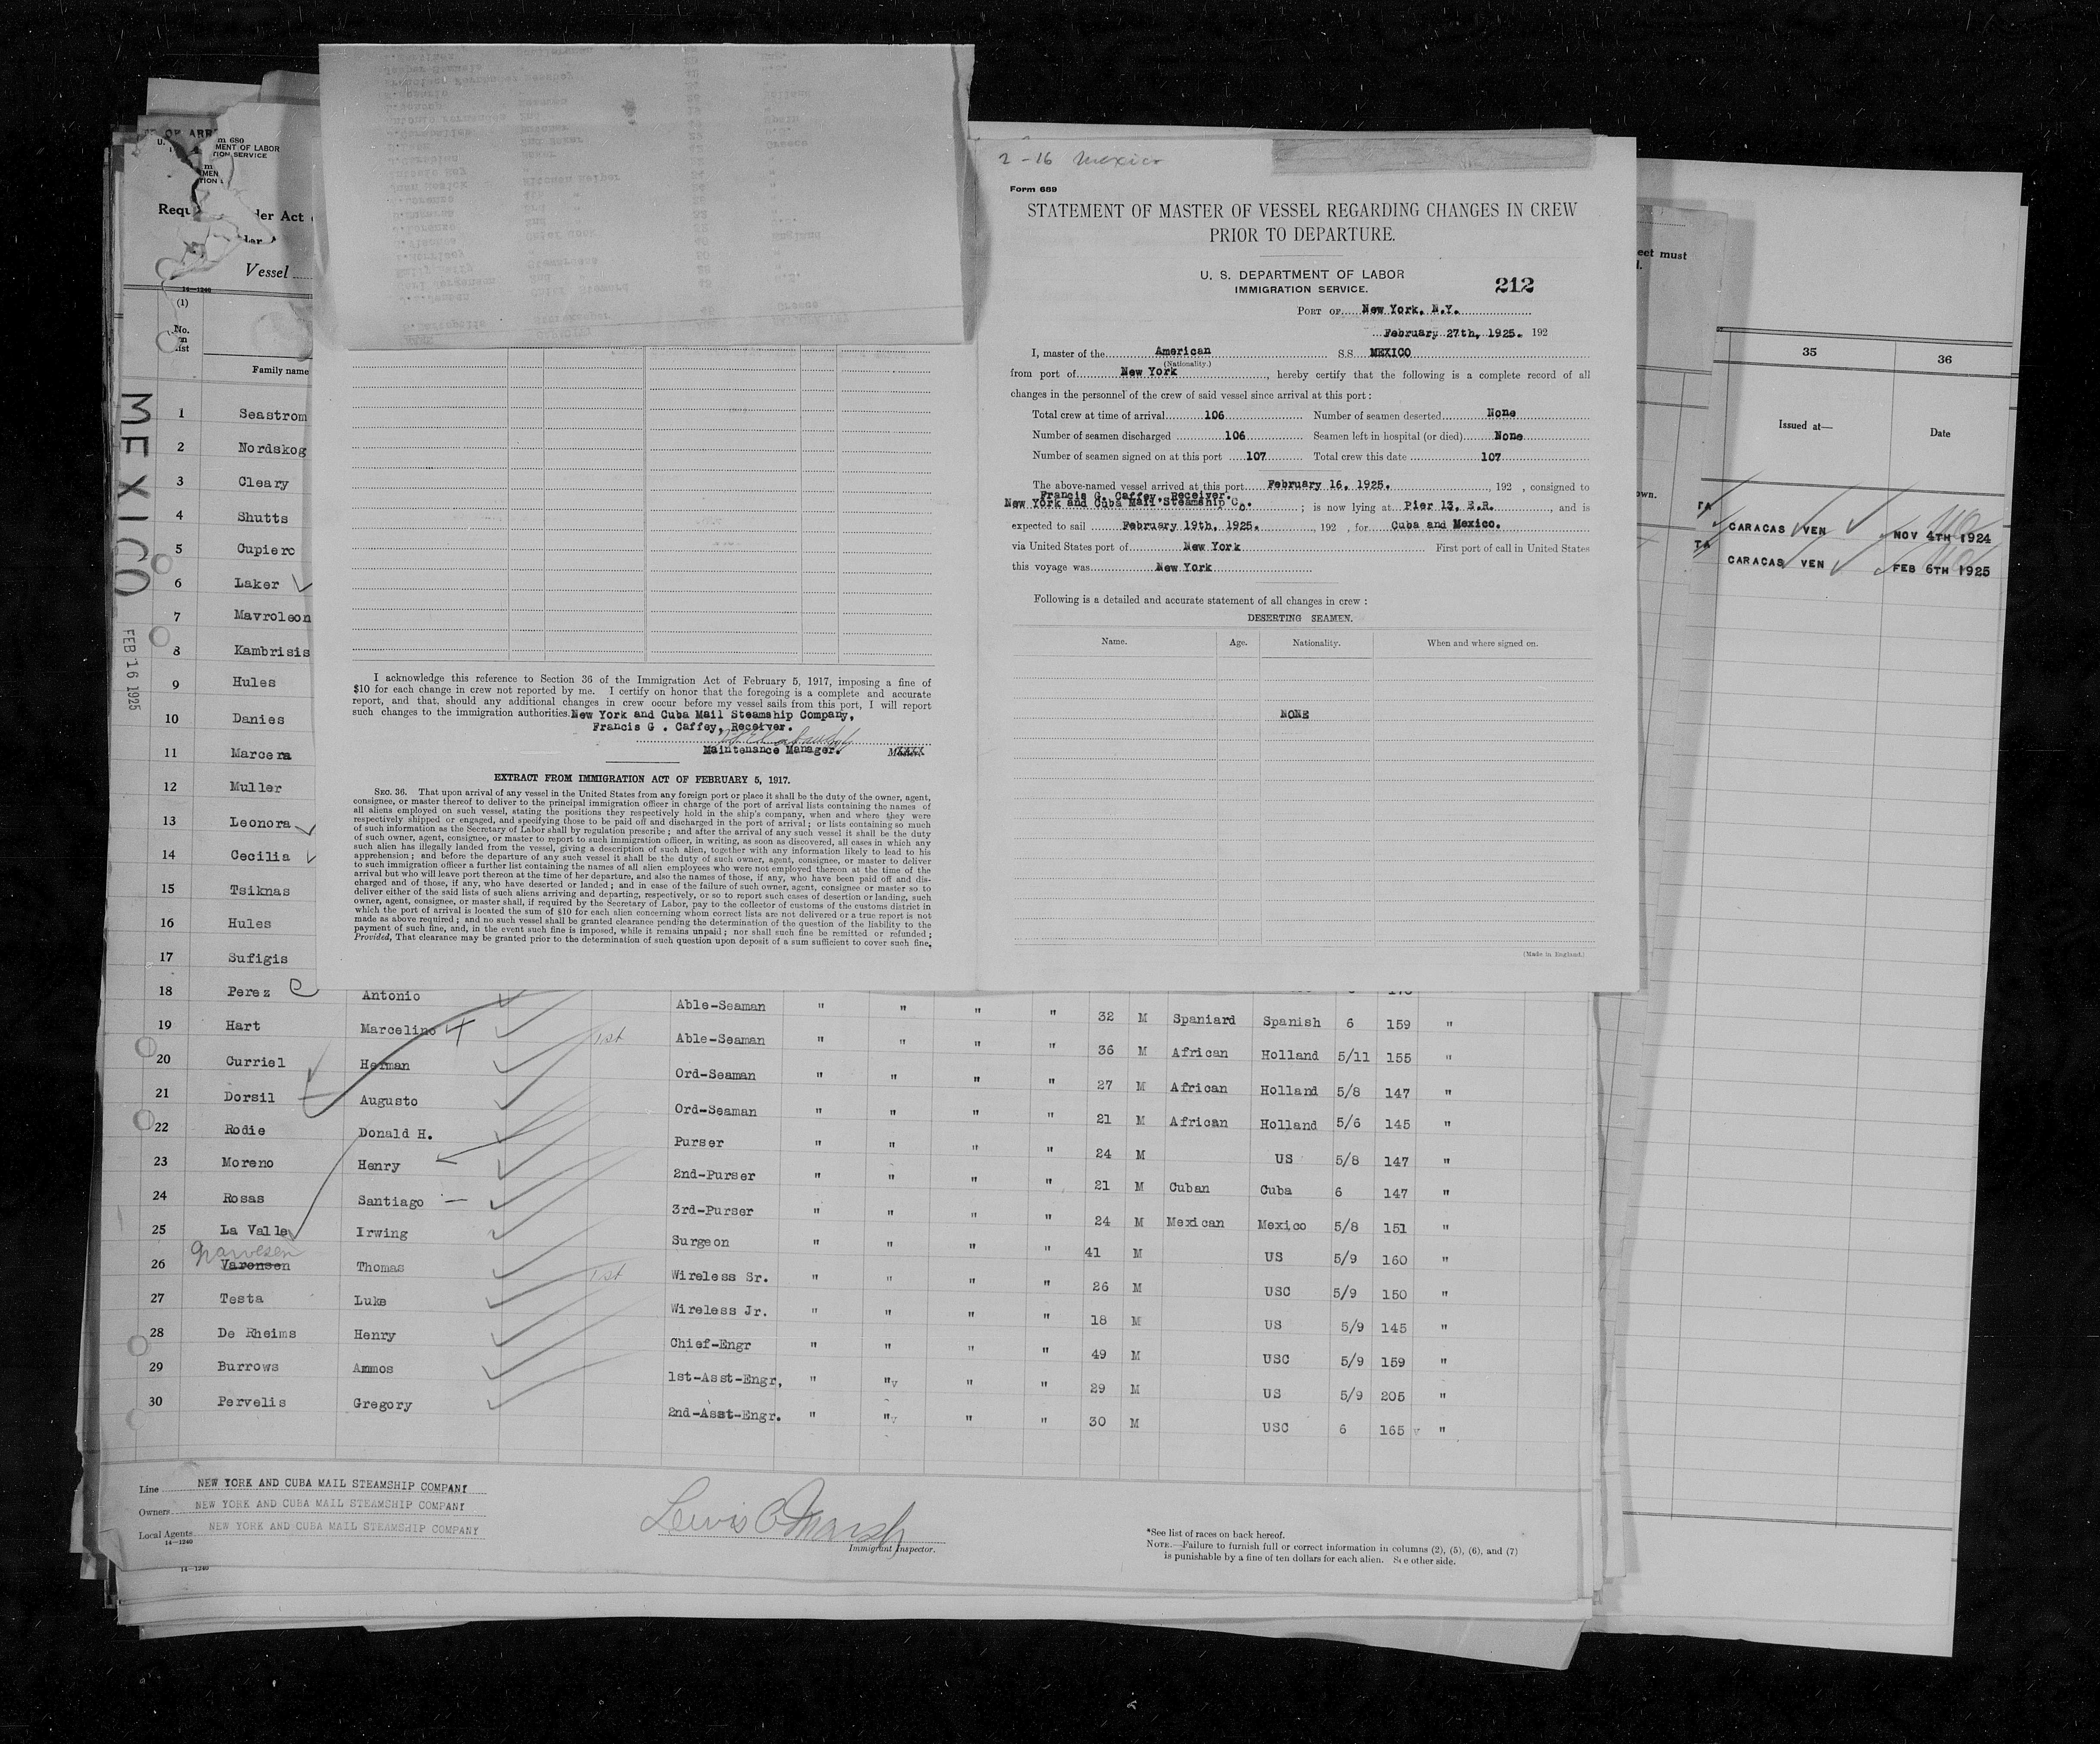 2-16 Mexico
Form 689
STATEMENT OF MASTER OF VESSEL REGARDING CHANGES IN CREW
PRIOR TO DEPARTURE.
U. S. DEPARTMENT OF LABOR
IMMIGRATION SERVICE.
212
PORT OF New York, N.Y.
February 27th, 1925. 192
I, master of the American S.S. MEXICO
(Nationality.)
from port of New York, hereby certify that the following is a complete record of all
changes in the personnel of the crew of said vessel since arrival at this port:
Total crew at time of arrival 106 Number of seamen deserted None
Number of seamen discharged 106 Seamen left in hospital (or died) None
Number of seamen signed on at this port 107 Total crew this date 107
The above-named vessel arrived at this port February 16, 1925. , 192 , consigned to
Francis G. Caffey, Receiver.
New York and Cuba Mail Steamship Co. ; is now lying at Pier 13, E.R. , and is
expected to sail February 19th, 1925. , 192 , for Cuba and Mexico.
via United States port of New York First port of call in United States
this voyage was New York
Following is a detailed and accurate statement of all changes in crew:
DESERTING SEAMEN.
Name. Age. Nationality. When and where signed on.
NONE
(Made in England.)
I acknowledge this reference to Section 36 of the Immigration Act of February 5, 1917, imposing a fine of
$10 for each change in crew not reported by me. I certify on honor that the foregoing is a complete and accurate
report, and that, should any additional changes in crew occur before my vessel sails from this port, I will report
such changes to the immigration authorities. New York and Cuba Mail Steamship Company,
Francis G . Caffey, Receiver.
Maintenance Manager.
EXTRACT FROM IMMIGRATION ACT OF FEBRUARY 5, 1917.
SEC. 36. That upon arrival of any vessel in the United States from any foreign port or place it shall be the duty of the owner, agent,
consignee, or master thereof to deliver to the principal immigration officer in charge of the port of arrival lists containing the names of
all aliens employed on such vessel, stating the positions they respectively hold in the ship's company, when and where they were
respectively shipped or engaged, and specifying those to be paid off and discharged in the port of arrival; or lists containing so much
of such information as the Secretary of Labor shall by regulation prescribe; and after the arrival of any such vessel it shall be the duty
of such owner, agent, consignee, or master to report to such immigration officer, in writing, as soon as discovered, all cases in which any
such alien has illegally landed from the vessel, giving a description of such alien, together with any information likely to lead to his
apprehension; and before the departure of any such vessel it shall be the duty of such owner, agent, consignee, or master to deliver
to such immigration officer a further list containing the names of all alien employees who were not employed thereon at the time of the
arrival but who will leave port thereon at the time of her departure, and also the names of those, if any, who have been paid off and dis-
charged and of those, if any, who have deserted or landed; and in case of the failure of such owner, agent, consignee or master so to
deliver either of the said lists of such aliens arriving and departing, respectively, or so to report such cases of desertion or landing, such
owner, agent, consignee, or master shall, if required by the Secretary of Labor, pay to the collector of customs of the customs district in
which the port of arrival is located the sum of $10 for each alien concerning whom correct lists are not delivered or a true report is not
made as above required; and no such vessel shall be granted clearance pending the determination of the question of the liability to the
payment of such fine, and, in the event such fine is imposed, while it remains unpaid; nor shall such fine be remitted or refunded;
Provided, That clearance may be granted prior to the determination of such question upon deposit of a sum sufficient to cover such fine,
m 689
MENT OF LABOR
TION SERVICE
Vessel
14-1240
(1)
No.
on
list
Family name
MEXICO
FEB 16 1925
1 Seastrom
2 Nordskog
3 Cleary
4 Shutts
5 Cupierc
6 Laker
7 Mavroleon
8 Kambrisis
9 Hules
10 Danies
11 Marcera
12 Muller
13 Leonora
14 Cecilia
15 Tsiknas
16 Hules
17 Sufigis
18 Perez Antonio Able-Seaman " " " " 32 M Spaniard Spanish 6 159 "
19 Hart Marcelino 1st Able-Seaman " " " " 36 M African Holland 5/11 155 "
20 Curriel Herman Ord-Seaman " " " " 27 M African Holland 5/8 147 "
21 Dorsil Augusto Ord-Seaman " " " " 21 M African Holland 5/6 145 "
22 Rodie Donald H. Purser " " " " 24 M US 5/8 147 "
23 Moreno Henry 2nd-Purser " " " " 21 M Cuban Cuba 6 147 "
24 Rosas Santiago 3rd-Purser " " " " 24 M Mexican Mexico 5/8 151 "
25 La Valle Irwing Surgeon " " " " 41 M US 5/9 160 "
26 Varensen Thomas 1st Wireless Sr. " " " " 26 M USC 5/9 150 "
27 Testa Luke Wireless Jr. " " " " 18 M US 5/9 145 "
28 De Rheims Henry Chief-Engr " " " " 49 M USC 5/9 159 "
29 Burrows Ammos 1st-Asst-Engr, " " " " 29 M US 5/9 205 "
30 Pervelis Gregory 2nd-Asst-Engr. " " " " 30 M USC 6 165 "
Line NEW YORK AND CUBA MAIL STEAMSHIP COMPANY
Owners NEW YORK AND CUBA MAIL STEAMSHIP COMPANY
Local Agents NEW YORK AND CUBA MAIL STEAMSHIP COMPANY
14-1240
Lewis C Marsh
Immigrant Inspector.
*See list of races on back hereof.
NOTE.—Failure to furnish full or correct information in columns (2), (5), (6), and (7)
is punishable by a fine of ten dollars for each alien. See other side.
14-1240
eet must
own.
35 36
Issued at— Date
CARACAS VEN NOV 4TH 1924
CARACAS VEN FEB 6TH 1925